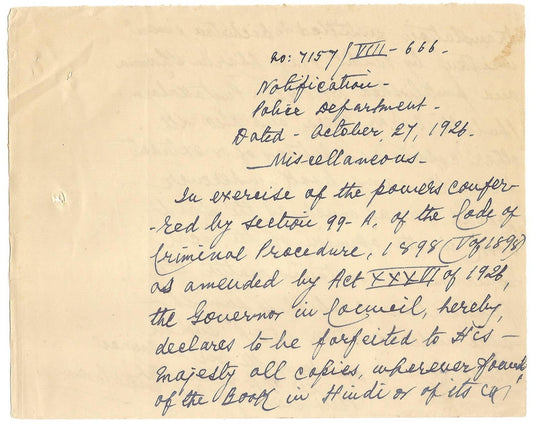 no: 7157/VIII-666.
Notification-
Police Department-
Dated- October, 27, 1926.
Miscellaneous-
In exercise of the powers confer-
-red by section 99-A. of the Code of
Criminal Procedure, 1898 (V of 1898)
as amended by Act XXXVI of 1926,
the Governor in Council, hereby,
declares to be forfeited to His-
Majesty all copies, wherever found
of the Book in Hindi or of its